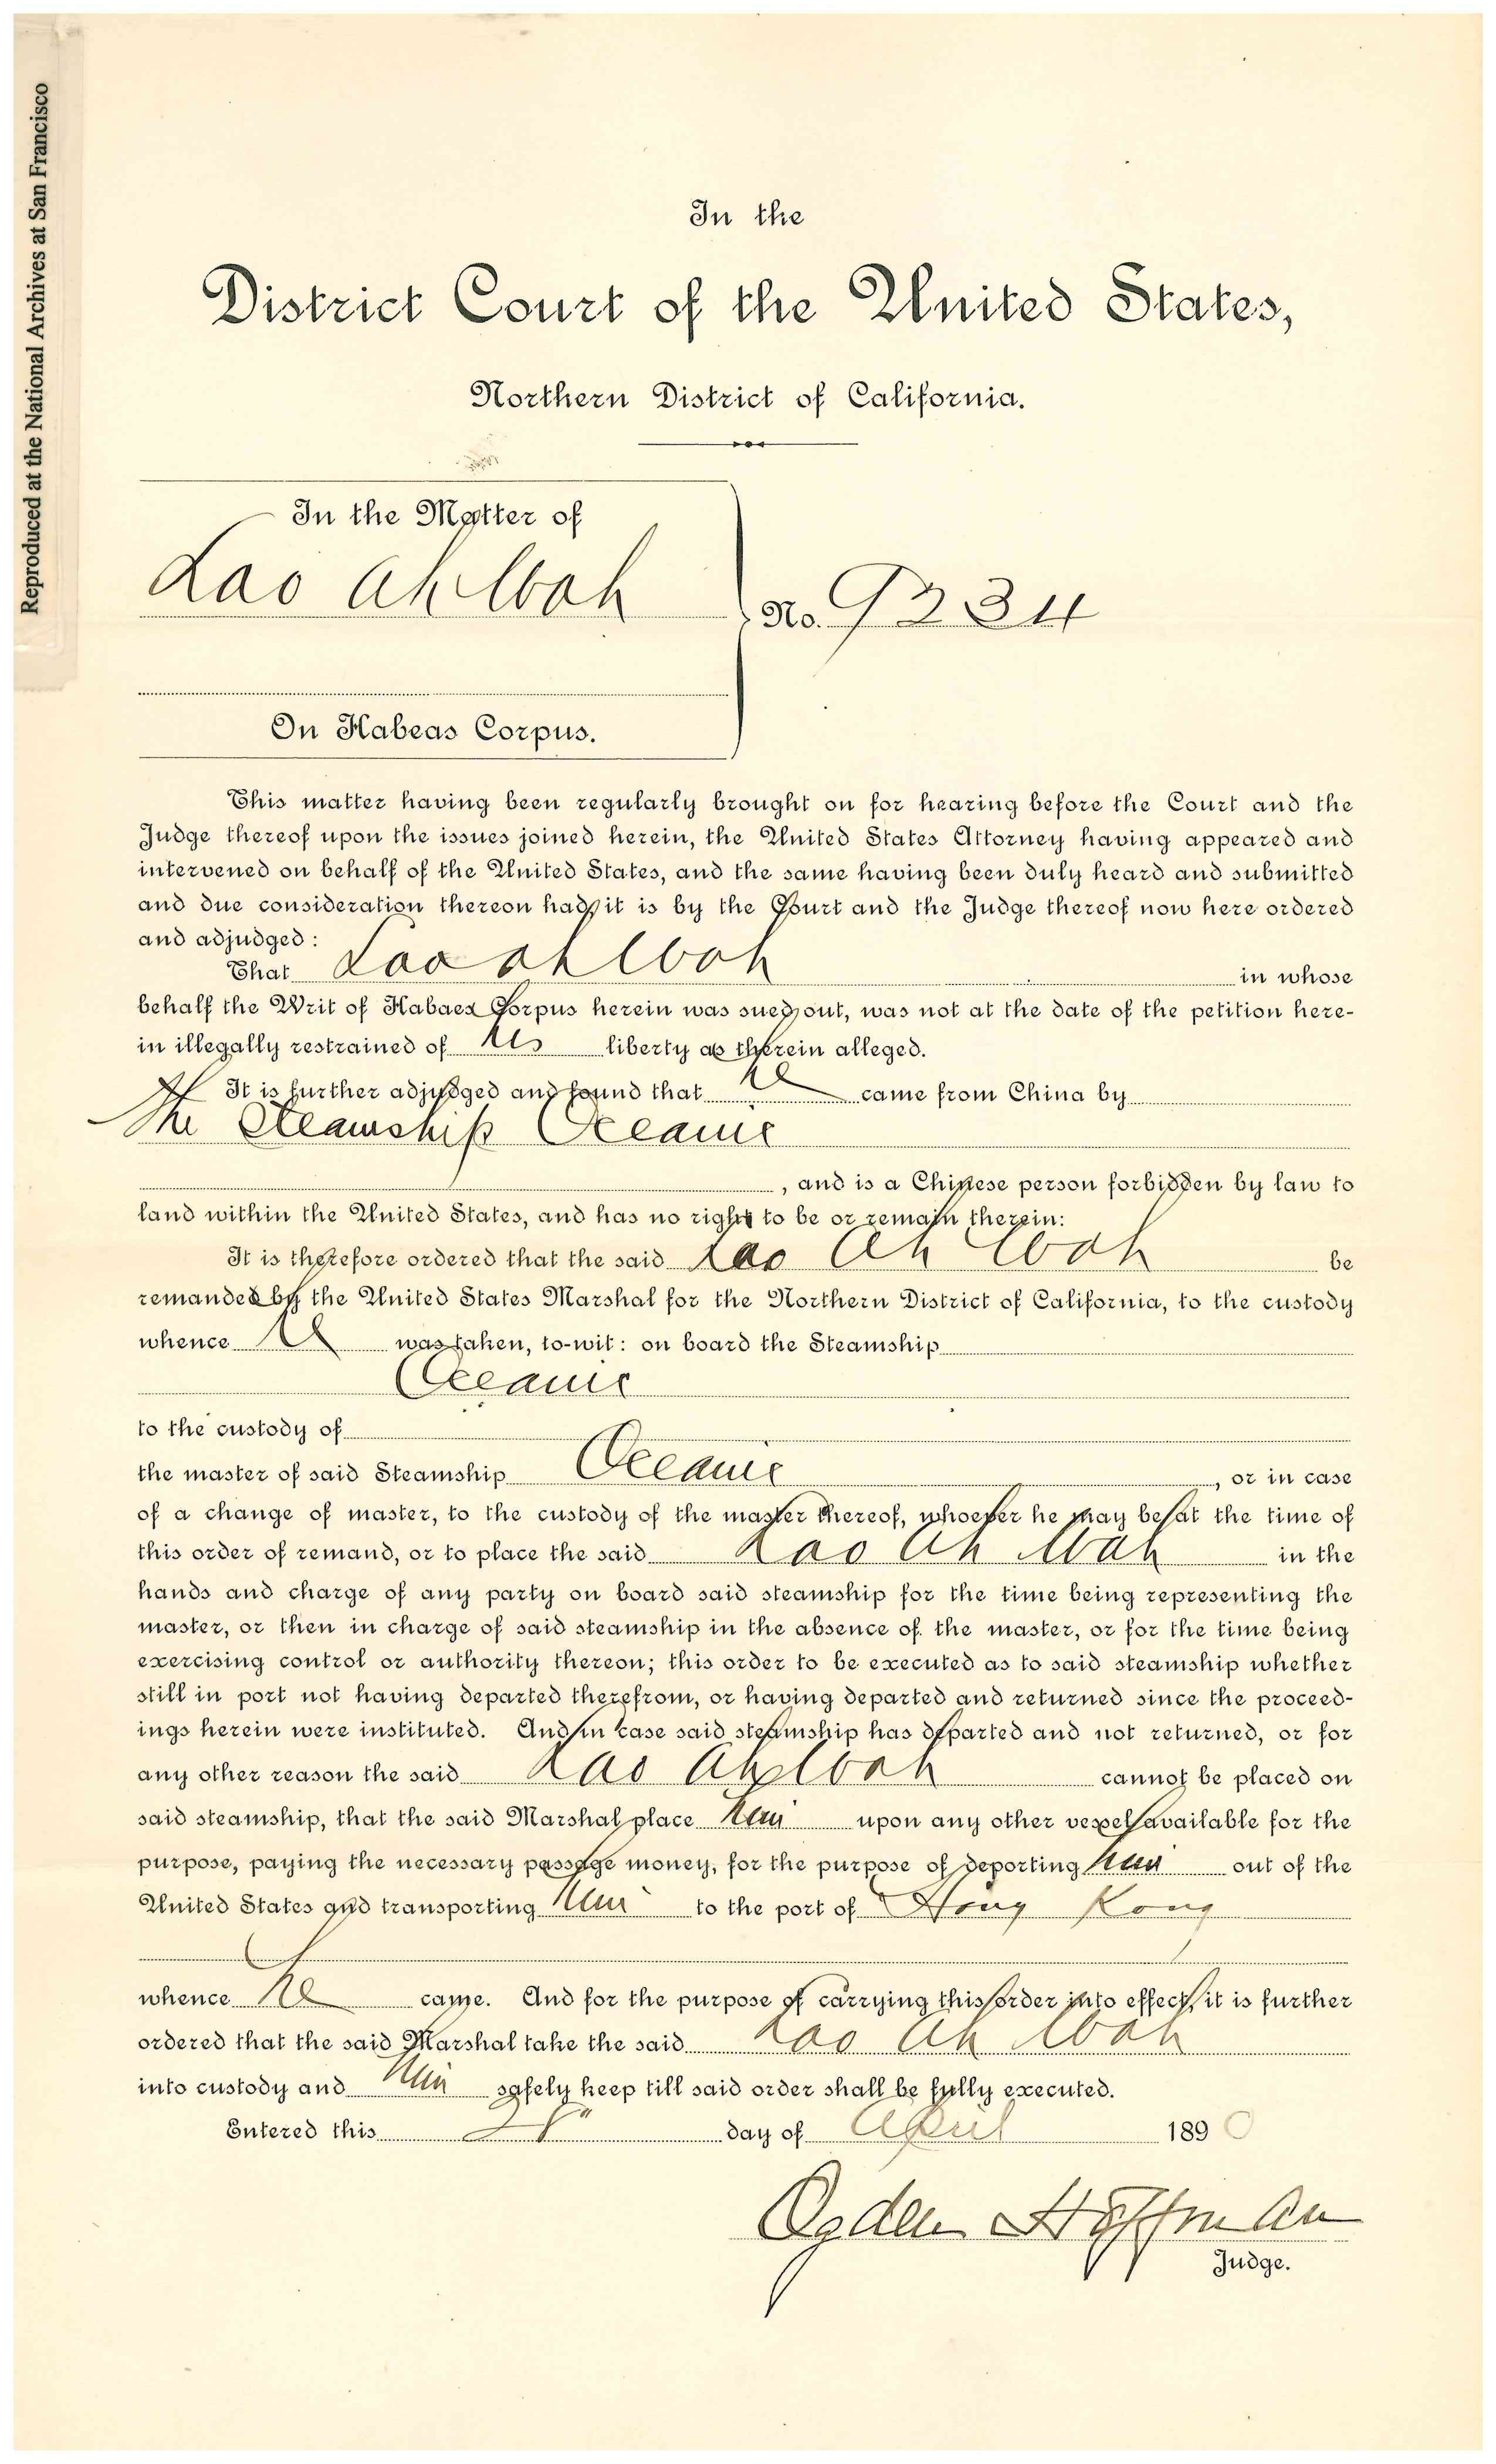 Reproduced at the National Archives at San Francisco
In the
District Court of the United States,
Northern District of California.
In the Matter of
Lao Ah Wah
No. 9234
On Habeas Corpus.
This matter having been regularly brought on for hearing before the Court and the
Judge thereof upon the issues joined herein, the United States Attorney having appeared and
intervened on behalf of the United States, and the same having been duly heard and submitted
and due consideration thereon had, it is by the Court and the Judge thereof now here ordered
and adjudged:
That Lao Ah Wah in whose
behalf the Writ of Habaes Corpus herein was sued out, was not at the date of the petition here-
in illegally restrained of his liberty as therein alleged.
It is further adjudged and found that he came from China by
the Steamship Oceanic
, and is a Chinese person forbidden by law to
land within the United States, and has no right to be or remain therein:
It is therefore ordered that the said Lao Ah Wah be
remanded by the United States Marshal for the Northern District of California, to the custody
whence he was taken, to-wit: on board the Steamship
Oceanic
to the custody of
the master of said Steamship Oceanic, or in case
of a change of master, to the custody of the master thereof, whoever he may be at the time of
this order of remand, or to place the said Lao Ah Wah in the
hands and charge of any party on board said steamship for the time being representing the
master, or then in charge of said steamship in the absence of the master, or for the time being
exercising control or authority thereon; this order to be executed as to said steamship whether
still in port not having departed therefrom, or having departed and returned since the proceed-
ings herein were instituted. And in case said steamship has departed and not returned, or for
any other reason the said Lao Ah Wah cannot be placed on
said steamship, that the said Marshal place him upon any other vessel available for the
purpose, paying the necessary passage money, for the purpose of deporting him out of the
United States and transporting him to the port of Hong Kong
whence he came. And for the purpose of carrying this order into effect, it is further
ordered that the said Marshal take the said Lao Ah Wah
into custody and him safely keep till said order shall be fully executed.
Entered this day of April 1890
Ogden Hoffman
Judge.